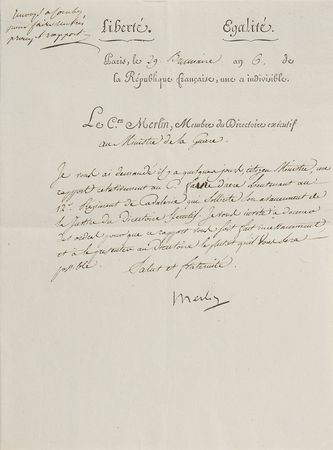 Renvoyé à
pour faire un très
prompt rapport
Liberté. Egalité.
Paris, le 29 Brumaire an 6. de
la République française, une & indivisible.
Le C.en Merlin, Membre du Directoire exécutif
au Ministre de la Guerre.
Je vous ai demandé il y a quelques jours, citoyen Ministre, un
rapport relativement au C. Lieutenant au
12e Régiment de Cavalerie qui sollicite son avancement de
la Justice du Directoire Exécutif. Je vous invite à donner
des ordres pour que ce rapport vous soit fait incessamment
et à le présenter au Directoire le plutot qu'il vous sera
possible.
Salut et fraternité
Merlin